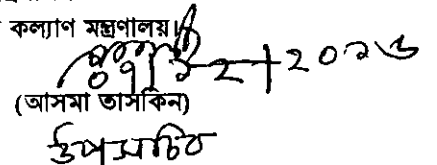 কল্যাণ মন্ত্রণালয়।
(আসমা তাসকিন)
উপসচিব